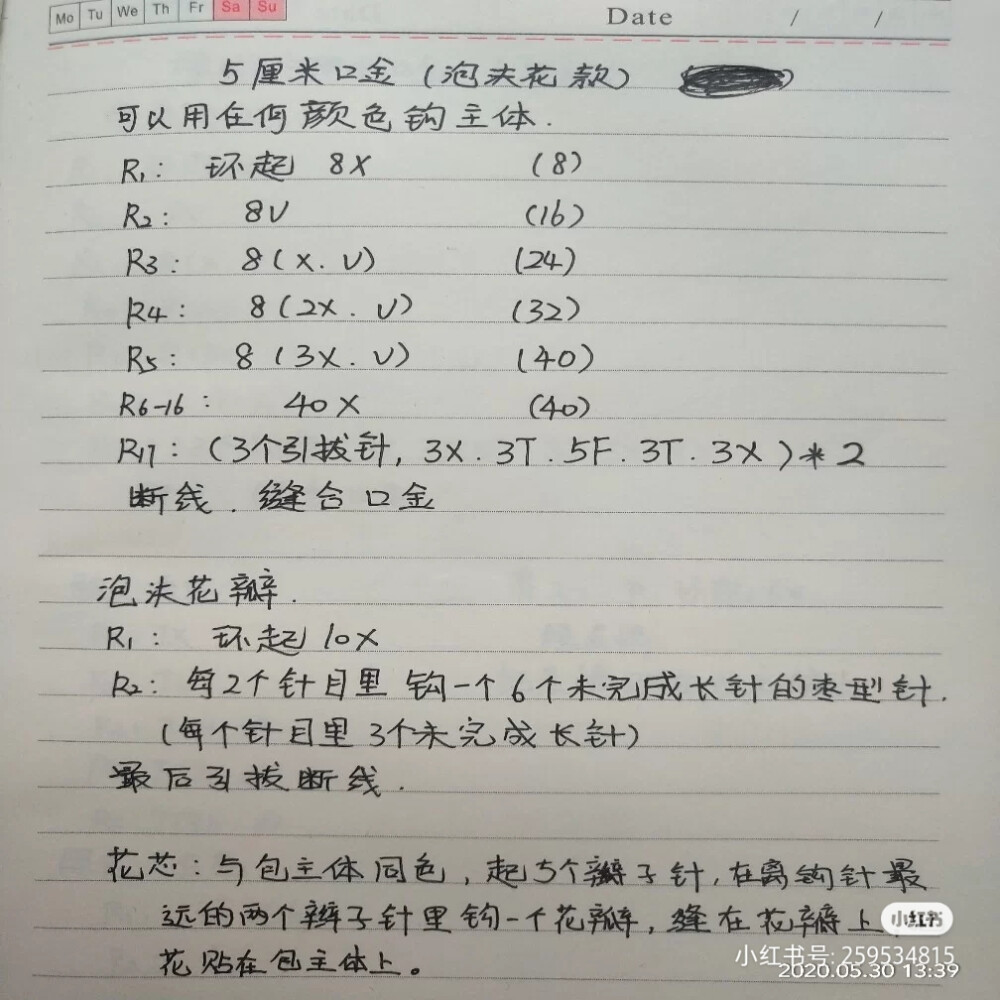 Mo Tu We Th Fr Sa Su
Date / /
5厘米口金(泡芙花款)
可以用任何颜色钩主体.
R1: 环起 8X (8)
R2: 8V (16)
R3: 8(X.V) (24)
R4: 8(2X.V) (32)
R5: 8(3X.V) (40)
R6-16: 40X (40)
R17: (3个引拔针, 3X.3T.5F.3T.3X)*2
断线. 缝合口金
泡芙花瓣.
R1: 环起10X
R2: 每2个针目里 钩一个6个未完成长针的枣型针.
(每个针目里3个未完成长针)
最后引拔断线.
花芯:与包主体同色,起5个辫子针,在离钩针最
远的两个辫子针里钩一个花瓣,缝在花瓣上
花贴在包主体上。
小红书
小红书号:259534815
2020.05.30 13:39